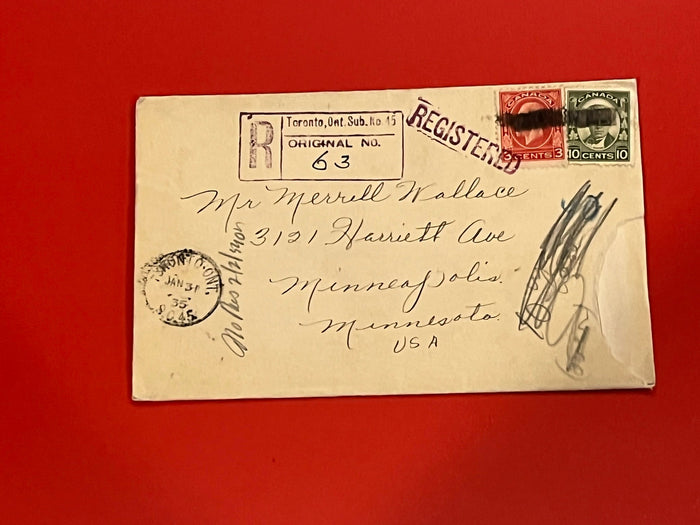 R
Toronto, Ont. Sub. No. 45
ORIGINAL NO.
63
REGISTERED
CANADA
3 CENTS 3
CANADA
10 CENTS 10
Mr Merrell Wallace
3121 Harriett Ave
Minneapolis.
Minnesota.
USA
TORONTO·ONT.
JAN 31
35
S.O.45